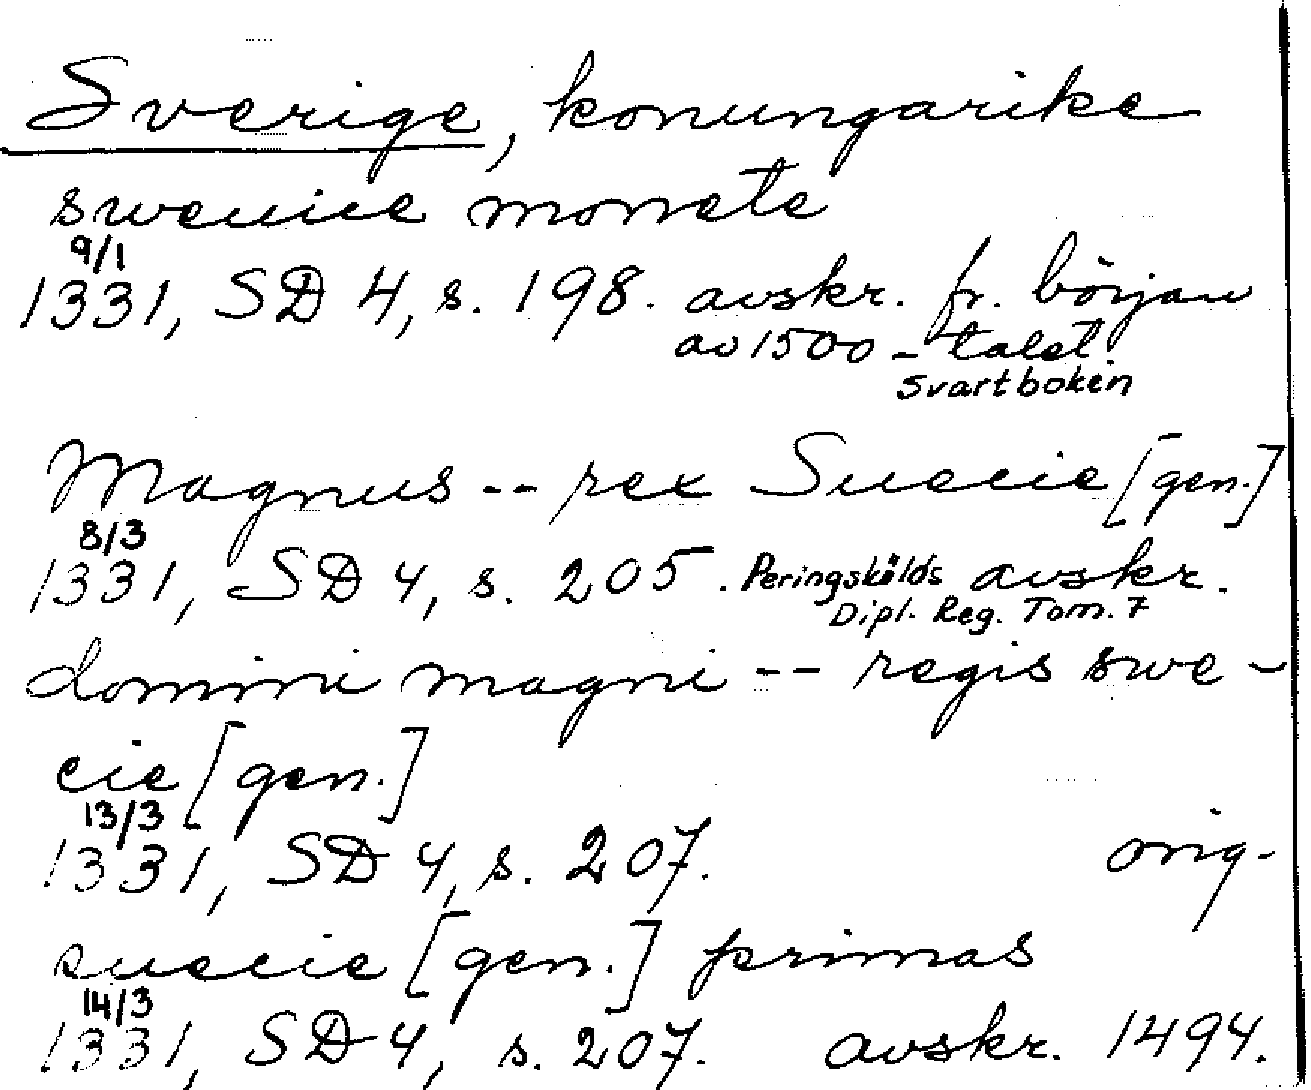 Sverige, konungarike
swecice monete
9/1
1331, SD 4, s. 198. avskr. fr. början
av 1500-talet
Svartboken
Magnus -- rex Suecie [gen.]
8/3
1331, SD 4, s. 205. Peringskiölds avskr.
Dipl. Reg. Tom. 7
domini magni -- regis swe-
cie [gen.]
13/3
1331, SD 4, s. 207. orig.
suecie [gen.] primas
14/3
1331, SD 4, s. 207. avskr. 1494.